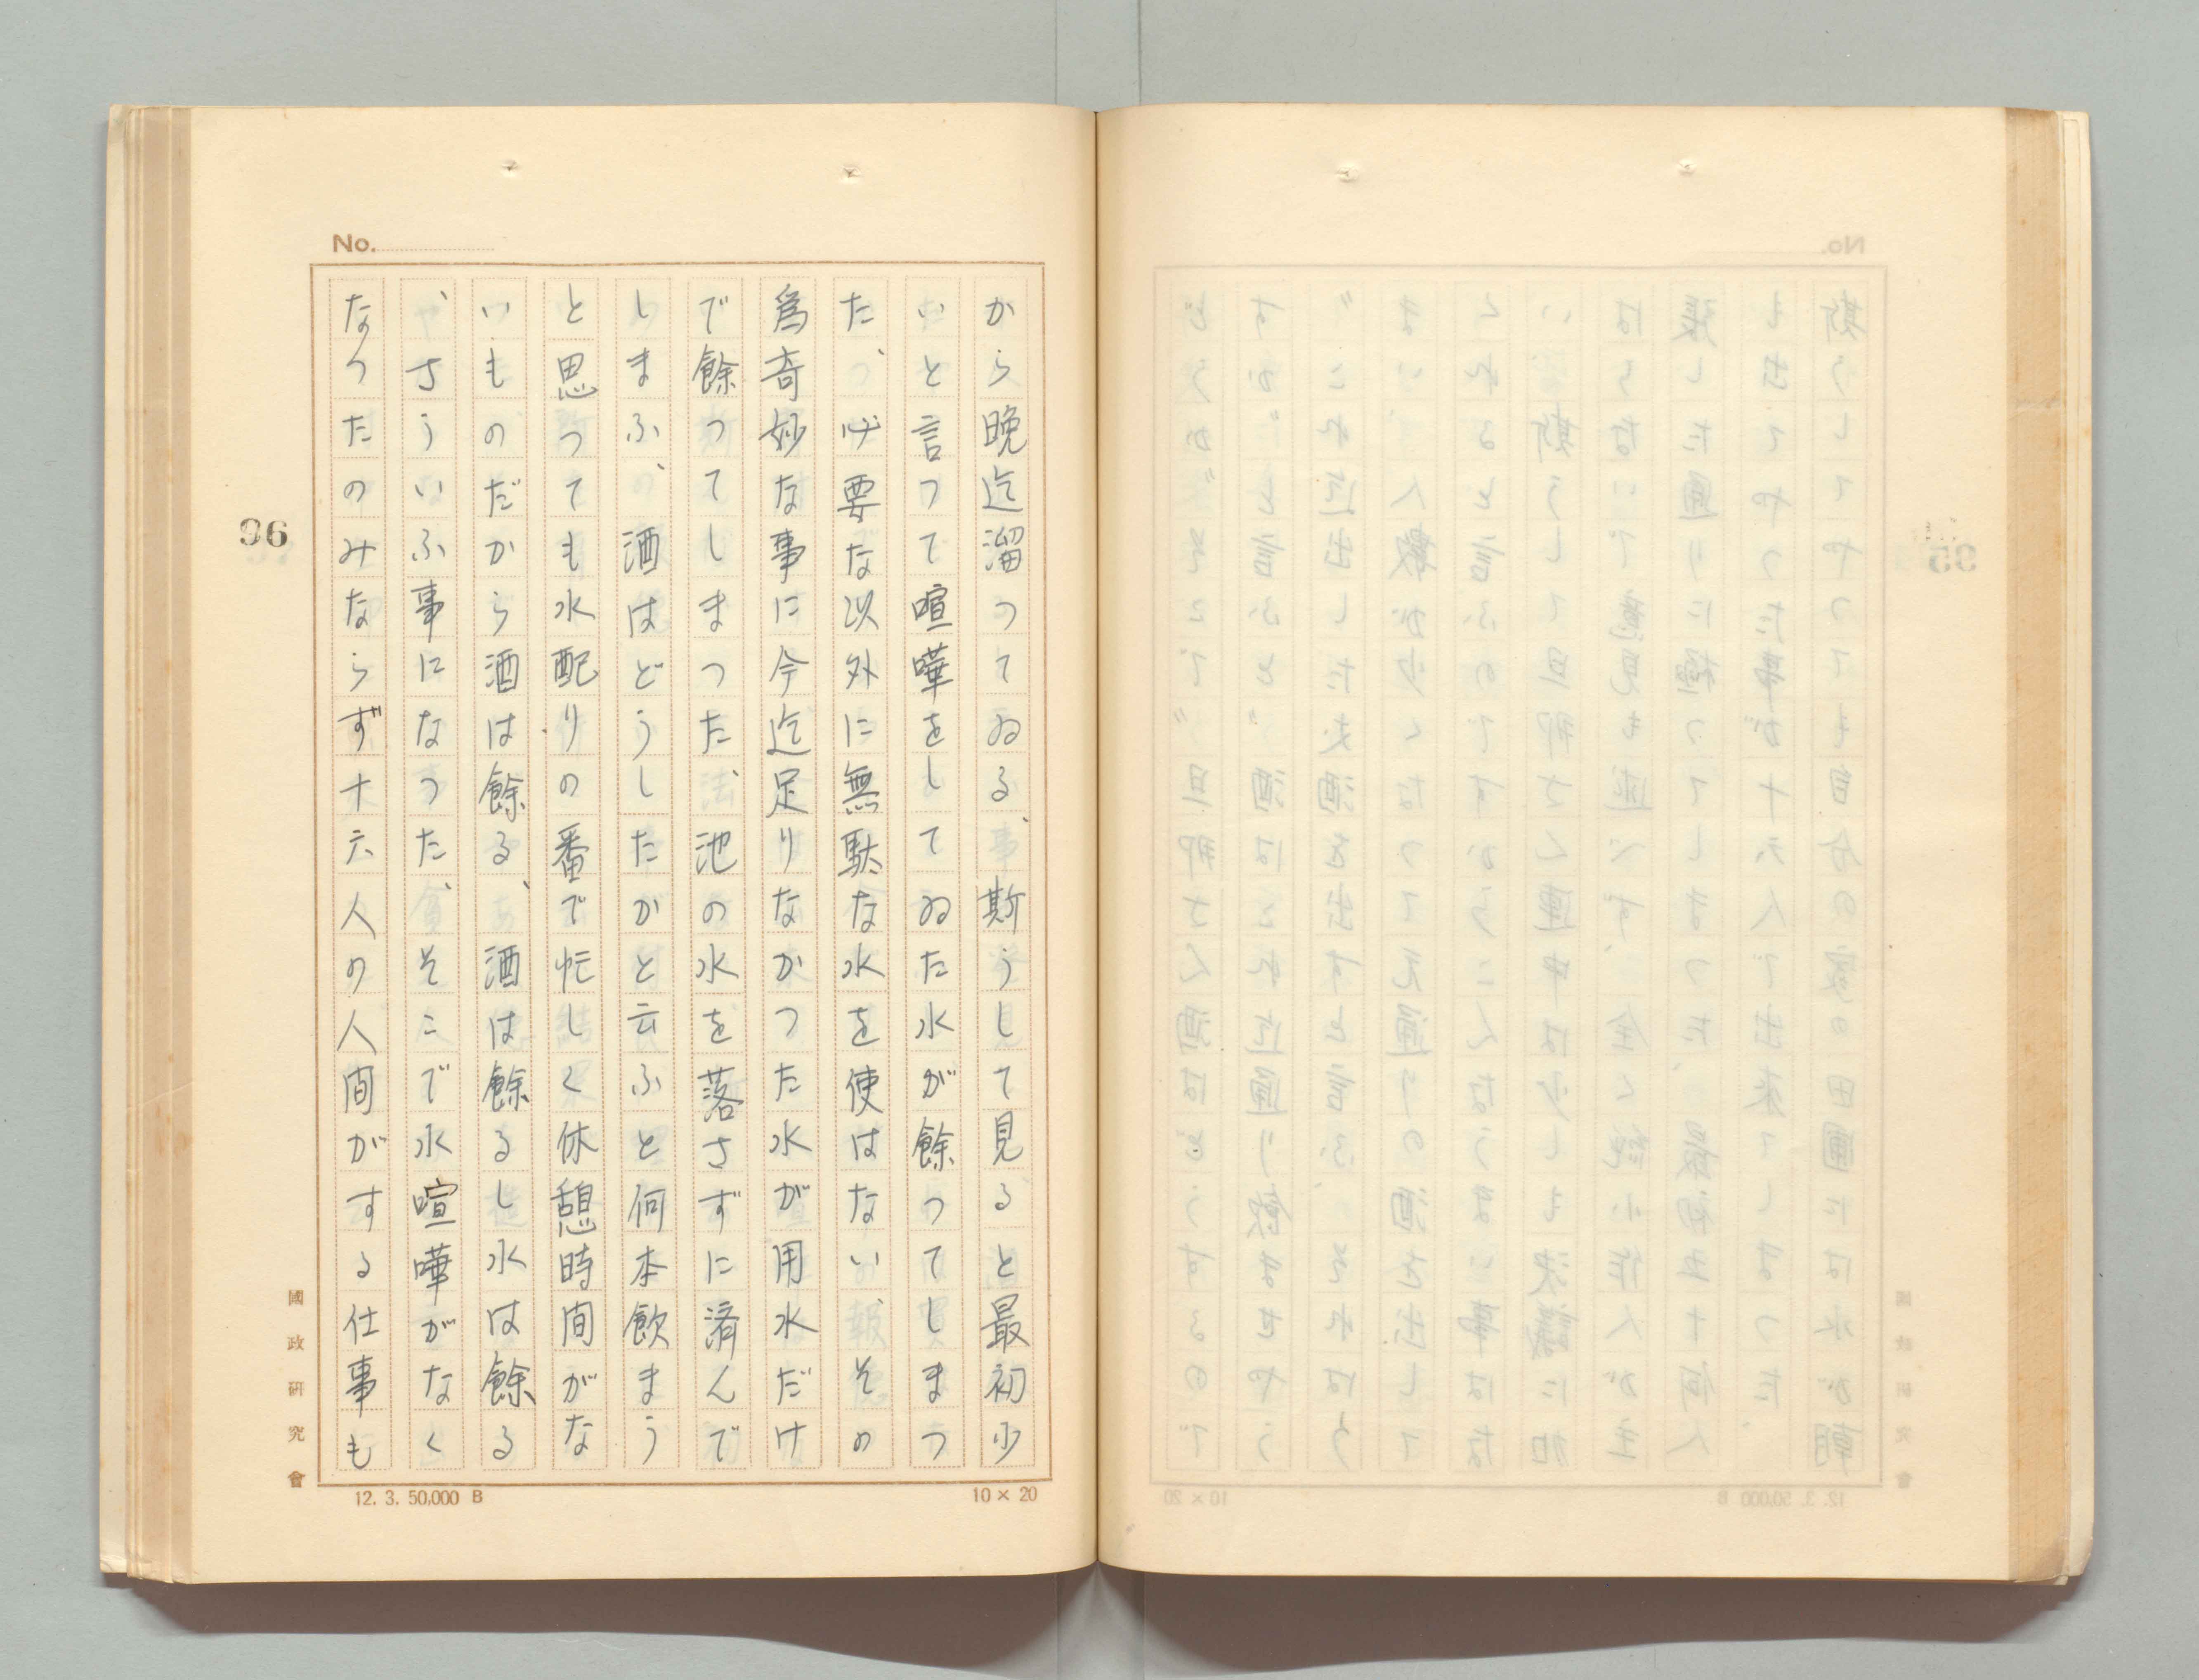 No.
から晩迄溜つてゐる、斯うして見ると最初少
いと言つて喧嘩をしてゐた水が餘つてしまつ
た、必要な以外に無駄な水を使はない、その
為奇妙な事に今迄足りなかつた水が用水だけ
で餘つてしまつた、池の水を落さずに済んで
しまふ、酒はどうしたかと云ふと何本飲まう
と思つても水配りの番で忙しく休憩時間がな
いものだから酒は餘る、酒は餘るし水は餘る
、さういふ事になつた、そこで水喧嘩がなく
なつたのみならず十六人の人間がする仕事も
96
國政研究會
12. 3. 50,000 B
10 × 20